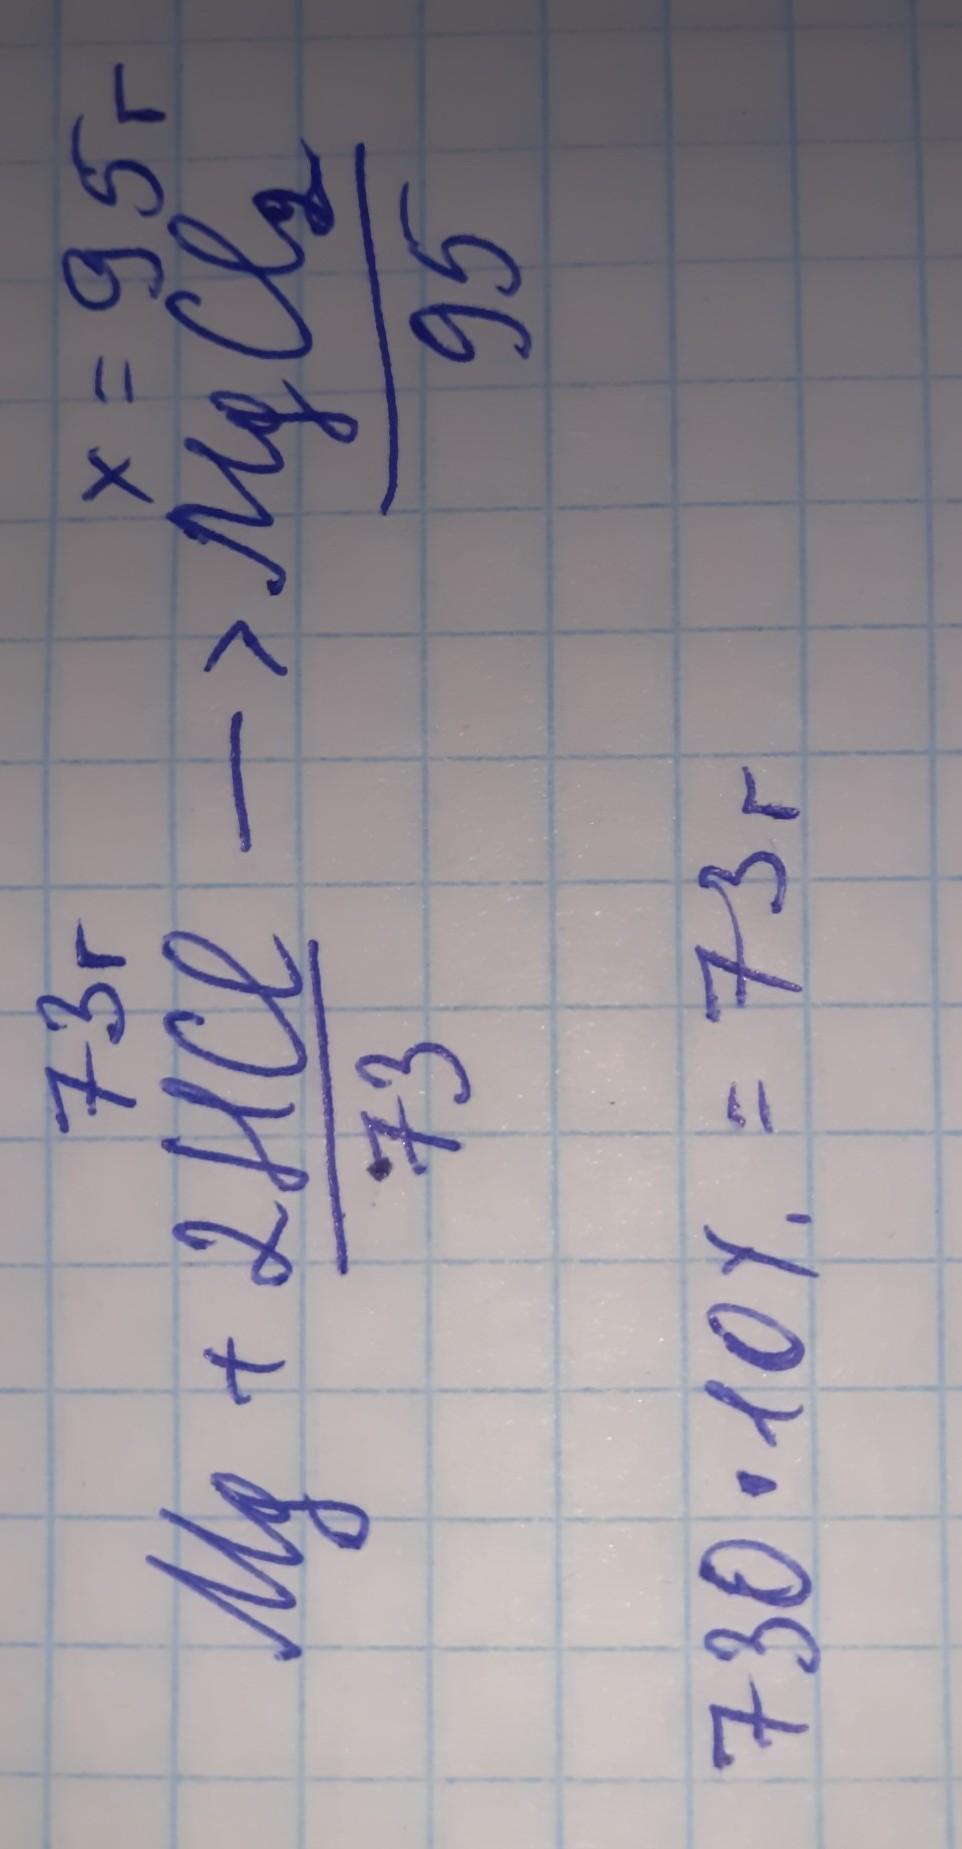 73г x = 95г
Mg + 2HCl —> MgCl2
73 95
730 · 10% = 73г